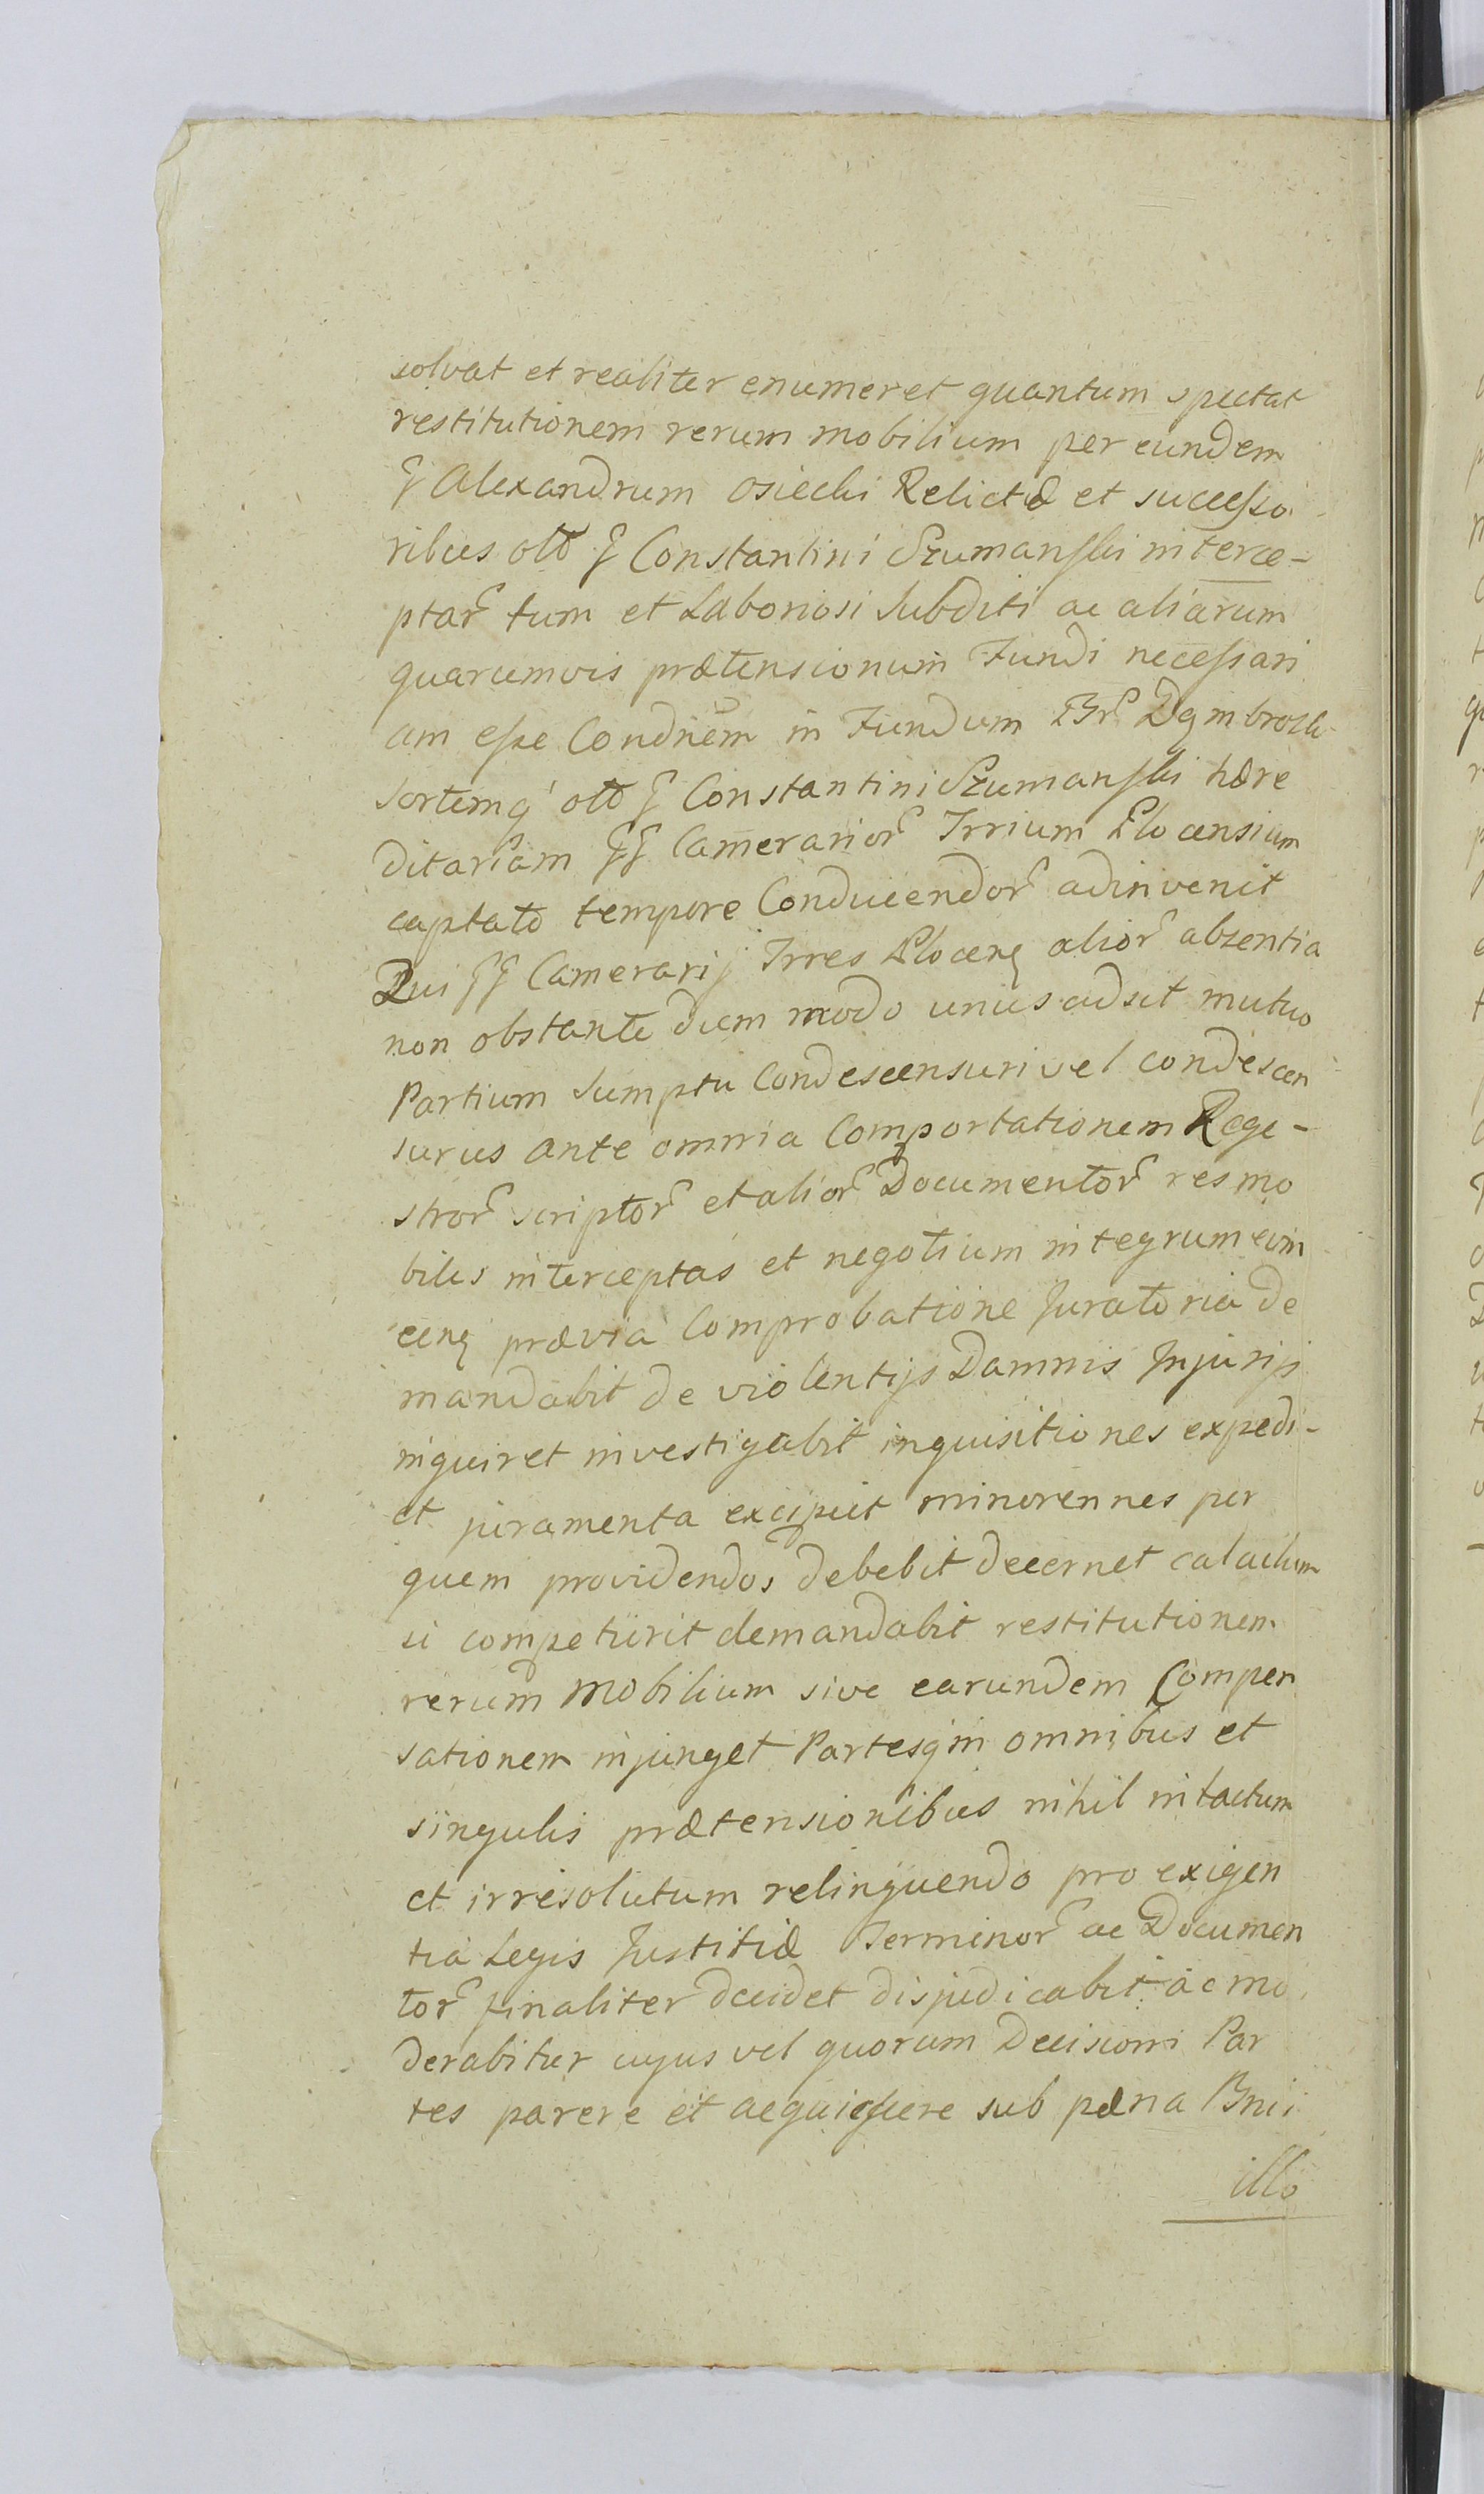 solvat et realiter enumeret quantum spectat
restitutionem rerum mobilium per eundem
G Alexandrum Osiecki Relictæ et successo
ribus olto G Constantini Szumanski interce-
ptar tum et Laboriosi Subditi ac aliarum
quarumvis prætensionum Fundi necessari
am esse Condnem in Fundum Dąmbrosk
sortemq olto G Constantini Szumanski hære
ditariam GG Camerarior Trrium Plocensium
captato tempore Conducendor adinvenit
Qui GG Camerarij Trres Plocens alior absentia
non obstante dum modo unus adsit mutuo
Partium Sumptu Condescensuri vel condescen
surus ante omnia Comportationem Rege-
stror scriptor et alior Documentor res mo
biles interceptas et negotium integrum evin
cens prævia Comprobatione Juratoria de
mandabit de violentijs Damnis Injurijs
inquiret investigabit inquisitiones expedi-
et juramenta excipiet minorennes per
quem providendos debebit decernet calculum
si competierit demandabit restitutionem
rerum mobilium sive earundem Compen
sationem injunget Partesq in omnibus et
singulis prætensionibus nihil intactum
et irresolutum relinquendo pro exigen
tia Legis Justitiæ Terminor ac Documen
tor finaliter decidet disjudicabit ac mo
derabitur cujus vel quorum Decisioni Par
tes parere et acquiescere sub pæna Bnii
illo